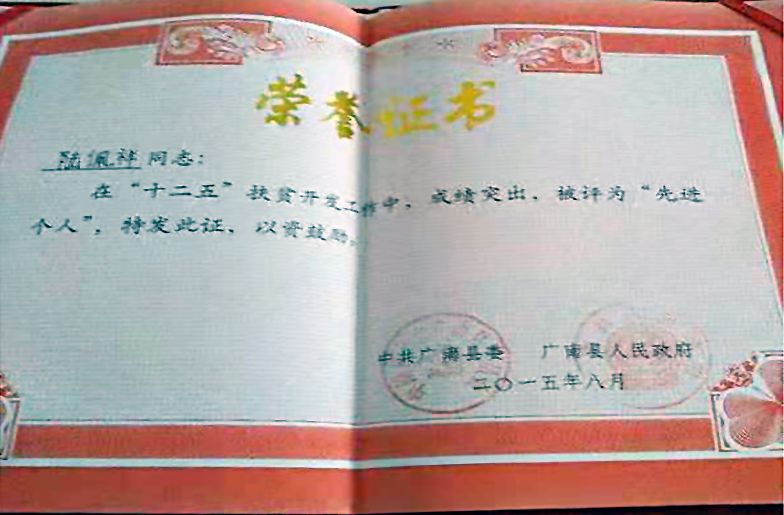 荣誉证书
陆佩祥同志：
在“十二五”扶贫开发工作中，成绩突出，被评为“先进
个人”，特发此证，以资鼓励。
中共广南县委 广南县人民政府
二〇一五年八月